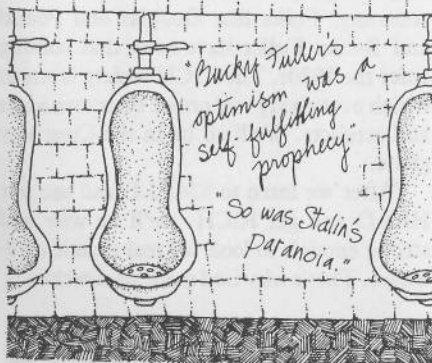 "Bucky Fuller's
optimism was a
self fulfilling
prophecy."
"So was Stalin's
paranoia."